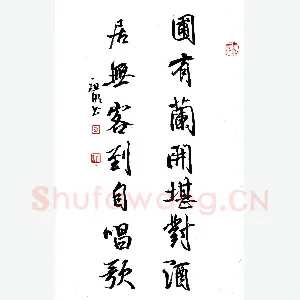 圃有蘭開堪對酒
居無客到自唱歌
Shufawang.CN